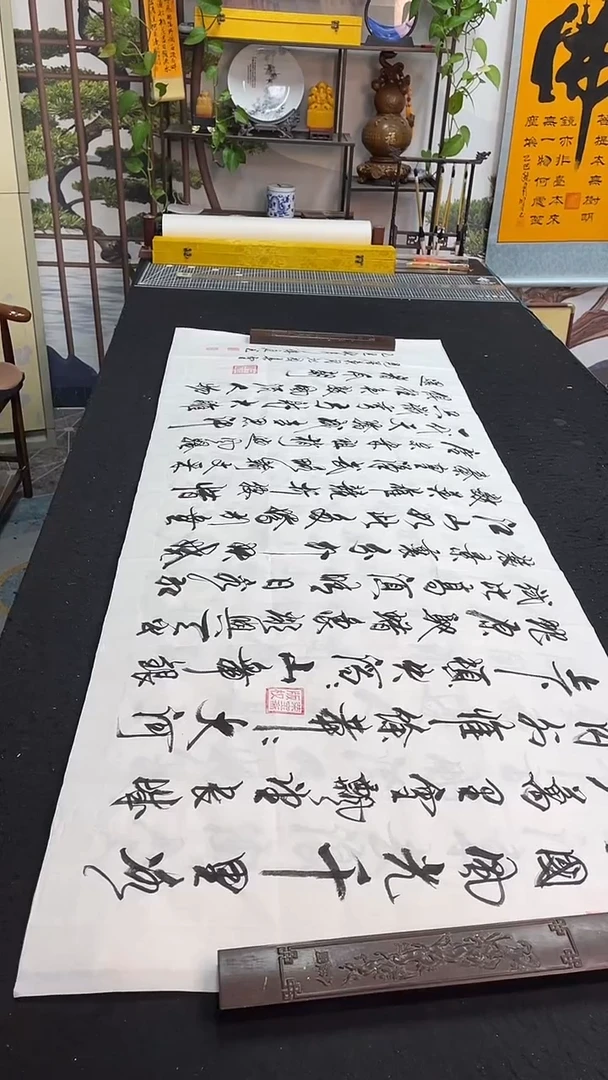 國風光千里冰
萬里雪飄望長城
內外惟餘莽莽大河
上下頓失滔滔山舞銀
蛇原馳蠟象欲與天公
試比高須晴日看紅
裝素裹分外妖嬈
江山如此多嬌引無
數英雄競折腰惜
秦皇漢武略輸文采
唐宗宋祖稍遜風騷
一代天驕成吉思汗
只識彎弓射大雕
俱往矣數風流人物
還看今朝
佛
菩提本無樹明
鏡亦非臺本來
無一物何處惹
塵埃